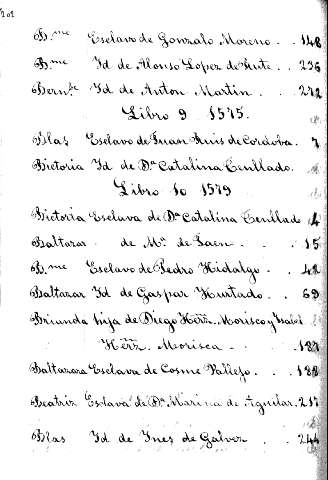 B.me Esclavo de Gonzalo Moreno . . 148
B.me Id de Alonso Lopez de . . 236
Bern.be Id de Anton Martin . . . 272
Libro 9 1575.
Blas Esclavo de Juan Ruis de Cordoba. 7
Bictoria Id de Dª Catalina Cenllado.
Libro 10 1579
Victoria Esclava de Dª Catalina Cenllado 4
Baltazar de Mn. de Jaen . . . 15
B.me Esclavo de Pedro Hidalgo . . 42
Baltazar Id de Gaspar Hurtado. . . 69
Brianda hija de Diego Herrz. Morisco y Isabel
Herrz. Morisca . . . 187
Baltazara Esclava de Cosme Vallejo. . 188
Beatriz Esclava de Dª Marina de Aguilar. 217
Blas Id de Ines de Galvez . . 244